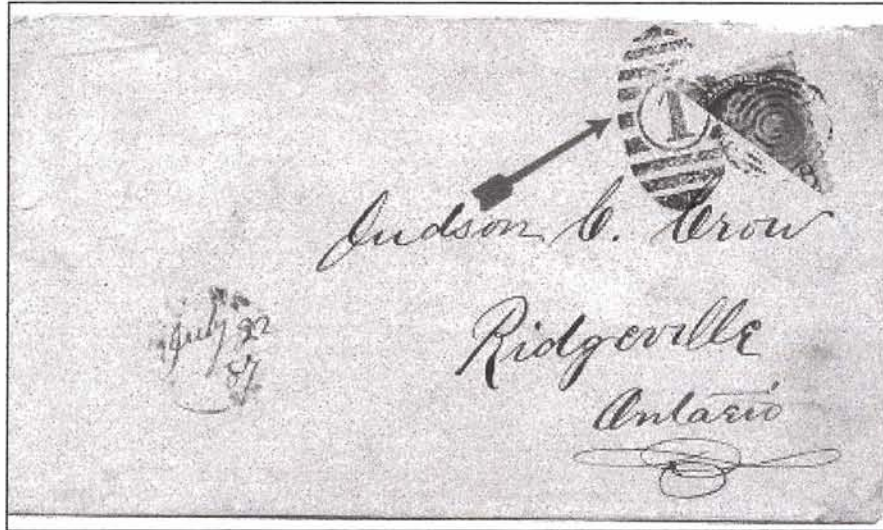 1
Judson C. Crow
Ridgeville
Ontario
July 22
87